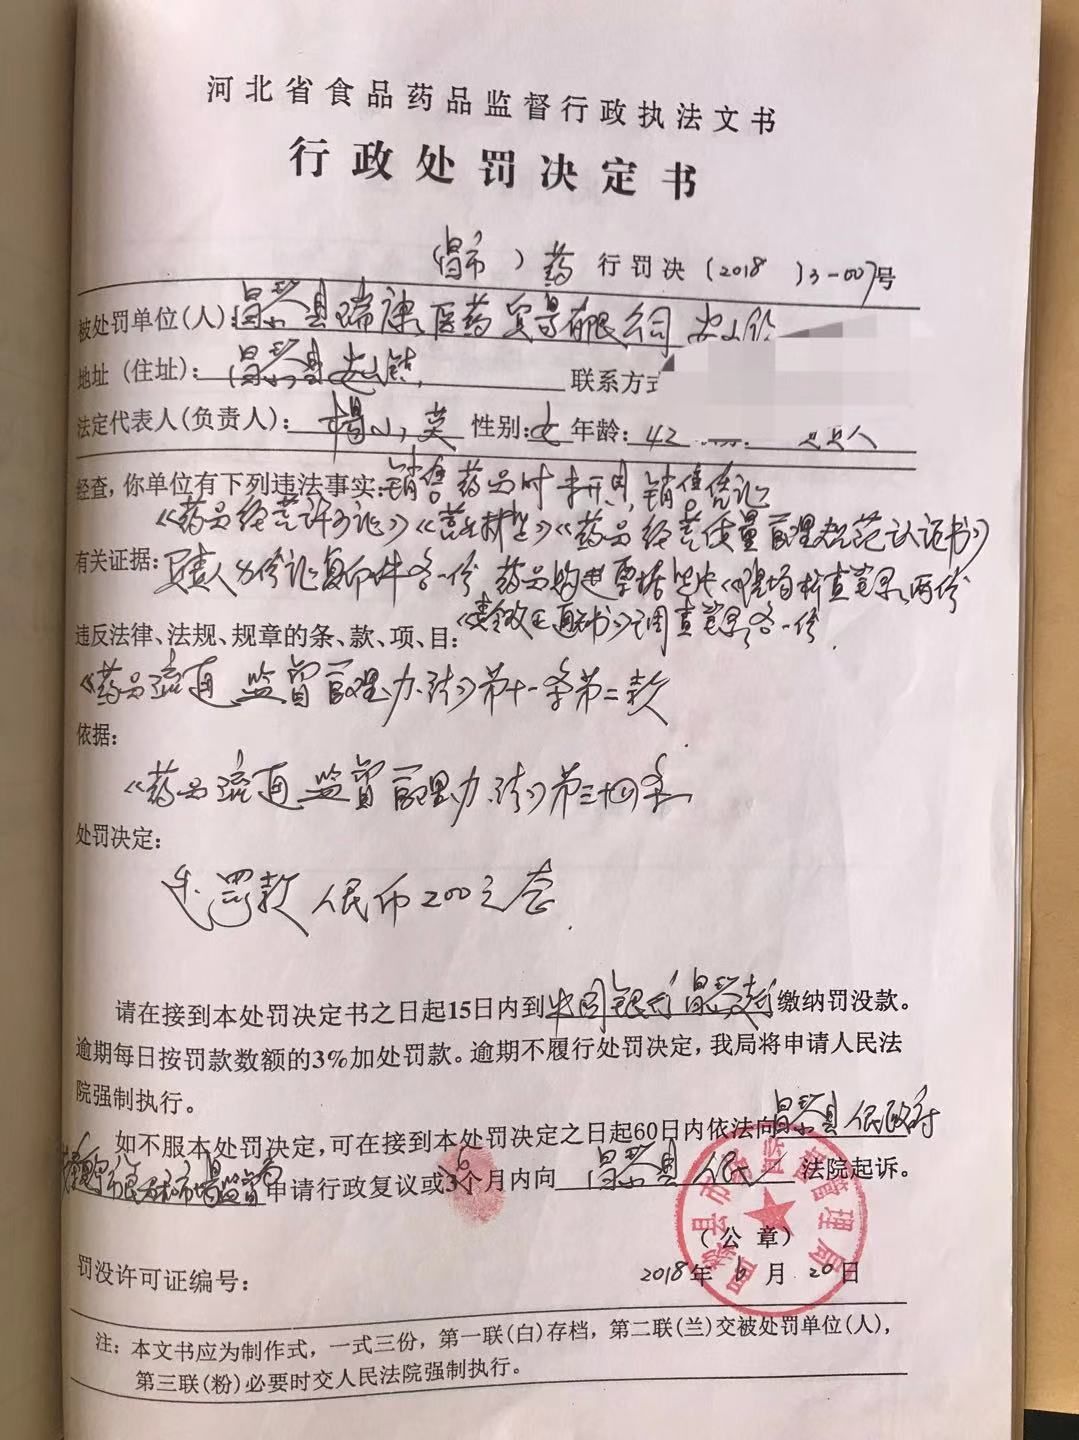 河北省食品药品监督行政执法文书
行政处罚决定书
(昌市)药行罚决〔2018〕3-007号
被处罚单位(人):昌黎县瑞康医药贸易有限公司
地址(住址):昌黎县 镇 联系方式
法定代表人(负责人):杨小英 性别:女 年龄:42
经查,你单位有下列违法事实:销售药品时未开具销售凭证
《药品经营许可证》《营业执照》《药品经营质量管理规范认证书》
有关证据:负责人身份证复印件各一份 药品购进票据 《现场检查笔录》两份
《责令改正通知书》调查笔录各一份.
违反法律、法规、规章的条、款、项、目:
《药品流通监督管理办法》第十一条第二款
依据:
《药品流通监督管理办法》第三十四条
处罚决定:
处罚款人民币200元整.
请在接到本处罚决定书之日起15日内到中国银行昌黎支行缴纳罚没款。
逾期每日按罚款数额的3%加处罚款。逾期不履行处罚决定,我局将申请人民法
院强制执行。
如不服本处罚决定,可在接到本处罚决定之日起60日内依法向昌黎县人民政府
市场监督 申请行政复议或6个月内向昌黎县人民法院起诉。
昌黎县市场监督管理局
(公章)
罚没许可证编号: 2018年6月20日
注:本文书应为制作式,一式三份,第一联(白)存档,第二联(兰)交被处罚单位(人),
第三联(粉)必要时交人民法院强制执行。